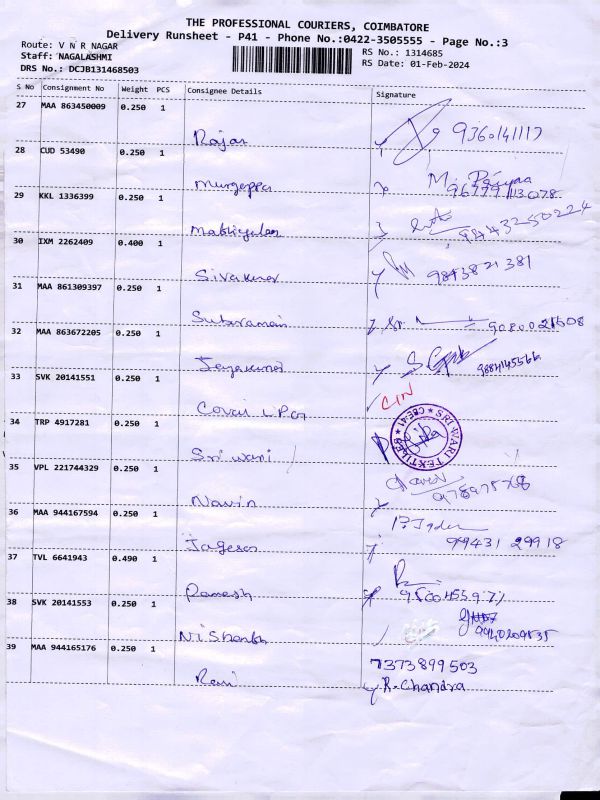 THE PROFESSIONAL COURIERS, COIMBATORE
Delivery Runsheet - P41 - Phone No.:0422-3505555 - Page No.:3
Route: V N R NAGAR
Staff: NAGALASHMI
DRS No.: DCJB131468503
RS No.: 1314685
RS Date: 01-Feb-2024
S No Consignment No Weight PCS Consignee Details Signature
27 MAA 863450009 0.250 1
Rajan 9360141117
28 CUD 53490 0.250 1
Murgeppa M.
29 KKL 1336399 0.250 1
9843250224
30 IXM 2262409 0.400 1
Sivakumar 9843821381
31 MAA 861309397 0.250 1
Subramani 9080021508
32 MAA 863672205 0.250 1
Jeyakumar 9884145566
33 SVK 20141551 0.250 1
Covai LPG
34 TRP 4917281 0.250 1
Sri wari SRI WARI TEXTILES CBE-41
35 VPL 221744329 0.250 1
Navin
36 MAA 944167594 0.250 1
Jagesan 99431 29918
37 TVL 6641943 0.490 1
Ramesh
38 SVK 20141553 0.250 1
9940209535
39 MAA 944165176 0.250 1
7373899503
Rani R. Chandra